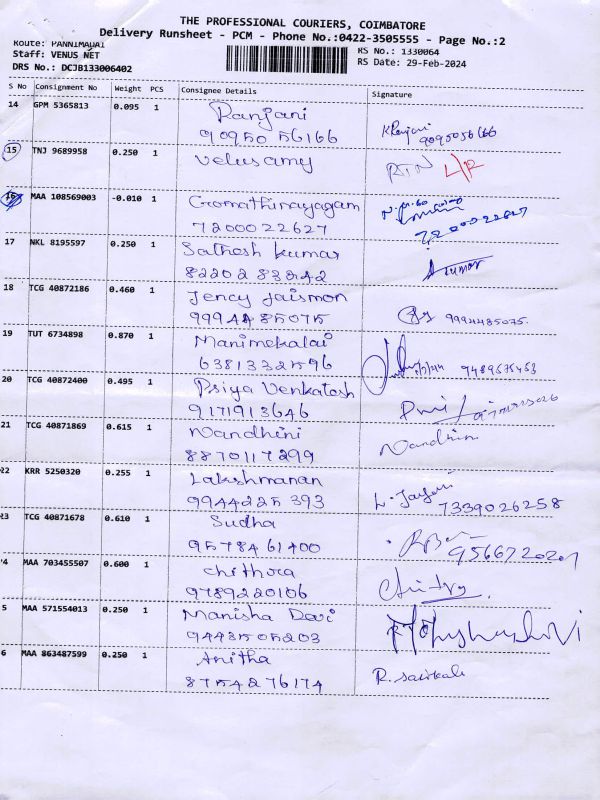 THE PROFESSIONAL COURIERS, COIMBATORE
Delivery Runsheet - PCM - Phone No.:0422-3505555 - Page No.:2
Route: PANNIMADAI
Staff: VENUS NET
RS No.: 1330064
DRS No.: DCJB133006402
RS Date: 29-Feb-2024
S No Consignment No Weight PCS Consignee Details Signature
14 GPM 5365813 0.095 1 Ranjani
90950 56166 K Ranjani 9095056166
15 TNJ 9689958 0.250 1 Velusamy RTN L/R
16 MAA 108569003 -0.010 1 Gomathinayagam
7200022627 7200022627
17 NKL 8195597 0.250 1 Sathesh kumar
82202 83342 S Kumar
18 TCG 40872186 0.460 1 Jency Jaismon
9994485075 9994485075.
19 TUT 6734898 0.870 1 Manimekalai
6381332596 9489575453
20 TCG 40872400 0.495 1 Priya Venkatesh
9171913646
21 TCG 40871869 0.615 1 Nandhini
8870117299 Nandhini
22 KRR 5250320 0.255 1 Lakshmanan
9944225 393 L. Jayani 7339026258
23 TCG 40871678 0.610 1 Sudha
9578461400
4 MAA 703455507 0.600 1 Chithra
9789220106 Chitra
5 MAA 571554013 0.250 1 Manisha Devi
9443505203
6 MAA 863487599 0.250 1 Anitha
8754276174 R. Sasikala